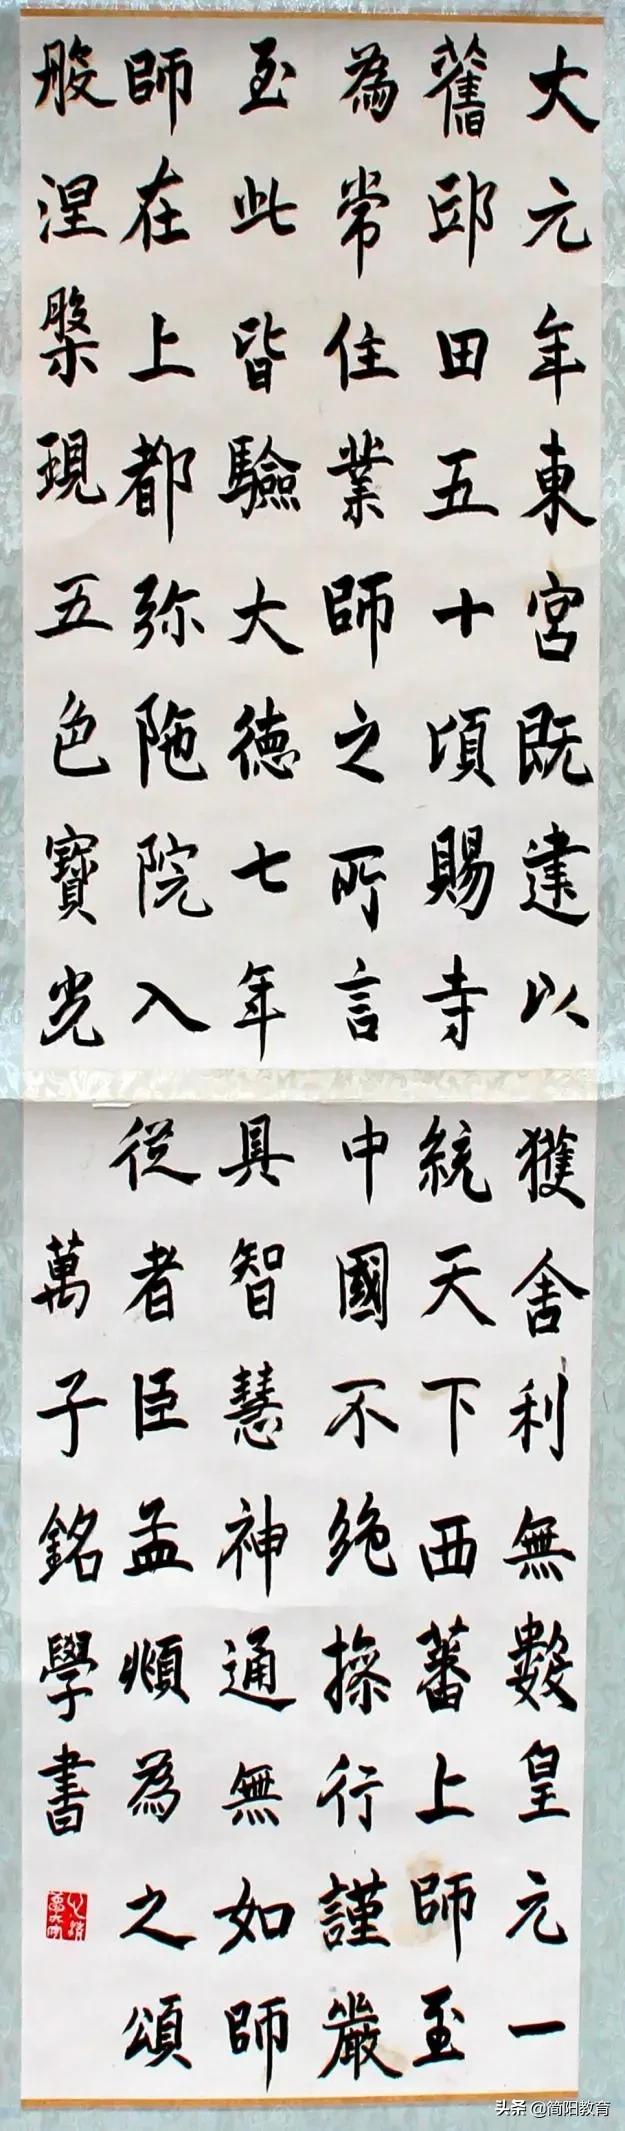 大元年東宮既建以
舊邸田五十頃賜寺
為常住業師之所言
至此皆驗大德七年
師在上都弥陁院入
般涅槃現五色寶光
獲舍利無數皇元一
統天下西蕃上師至
中國不絶操行謹嚴
具智慧神通無如師
從者臣孟頫為之頌
萬子銘學書
头条 @简阳教育